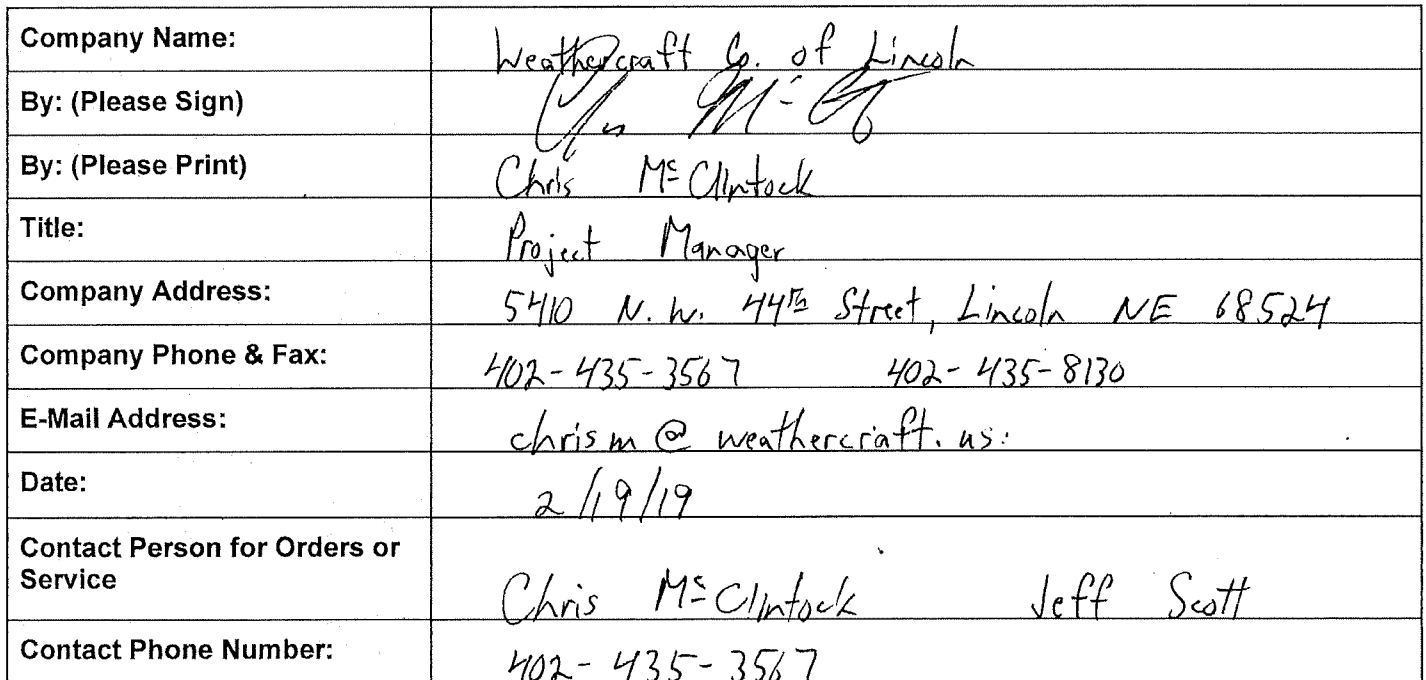 Company Name: Weathercraft Co. of Lincoln
By: (Please Sign)
By: (Please Print) Chris McClintock
Title: Project Manager
Company Address: 5410 N.W. 44th Street, Lincoln NE 68524
Company Phone & Fax: 402-435-3567 402-435-8130
E-Mail Address: chrism@weathercraft.us
Date: 2/19/19
Contact Person for Orders or
Service Chris McClintock Jeff Scott
Contact Phone Number: 402-435-3567